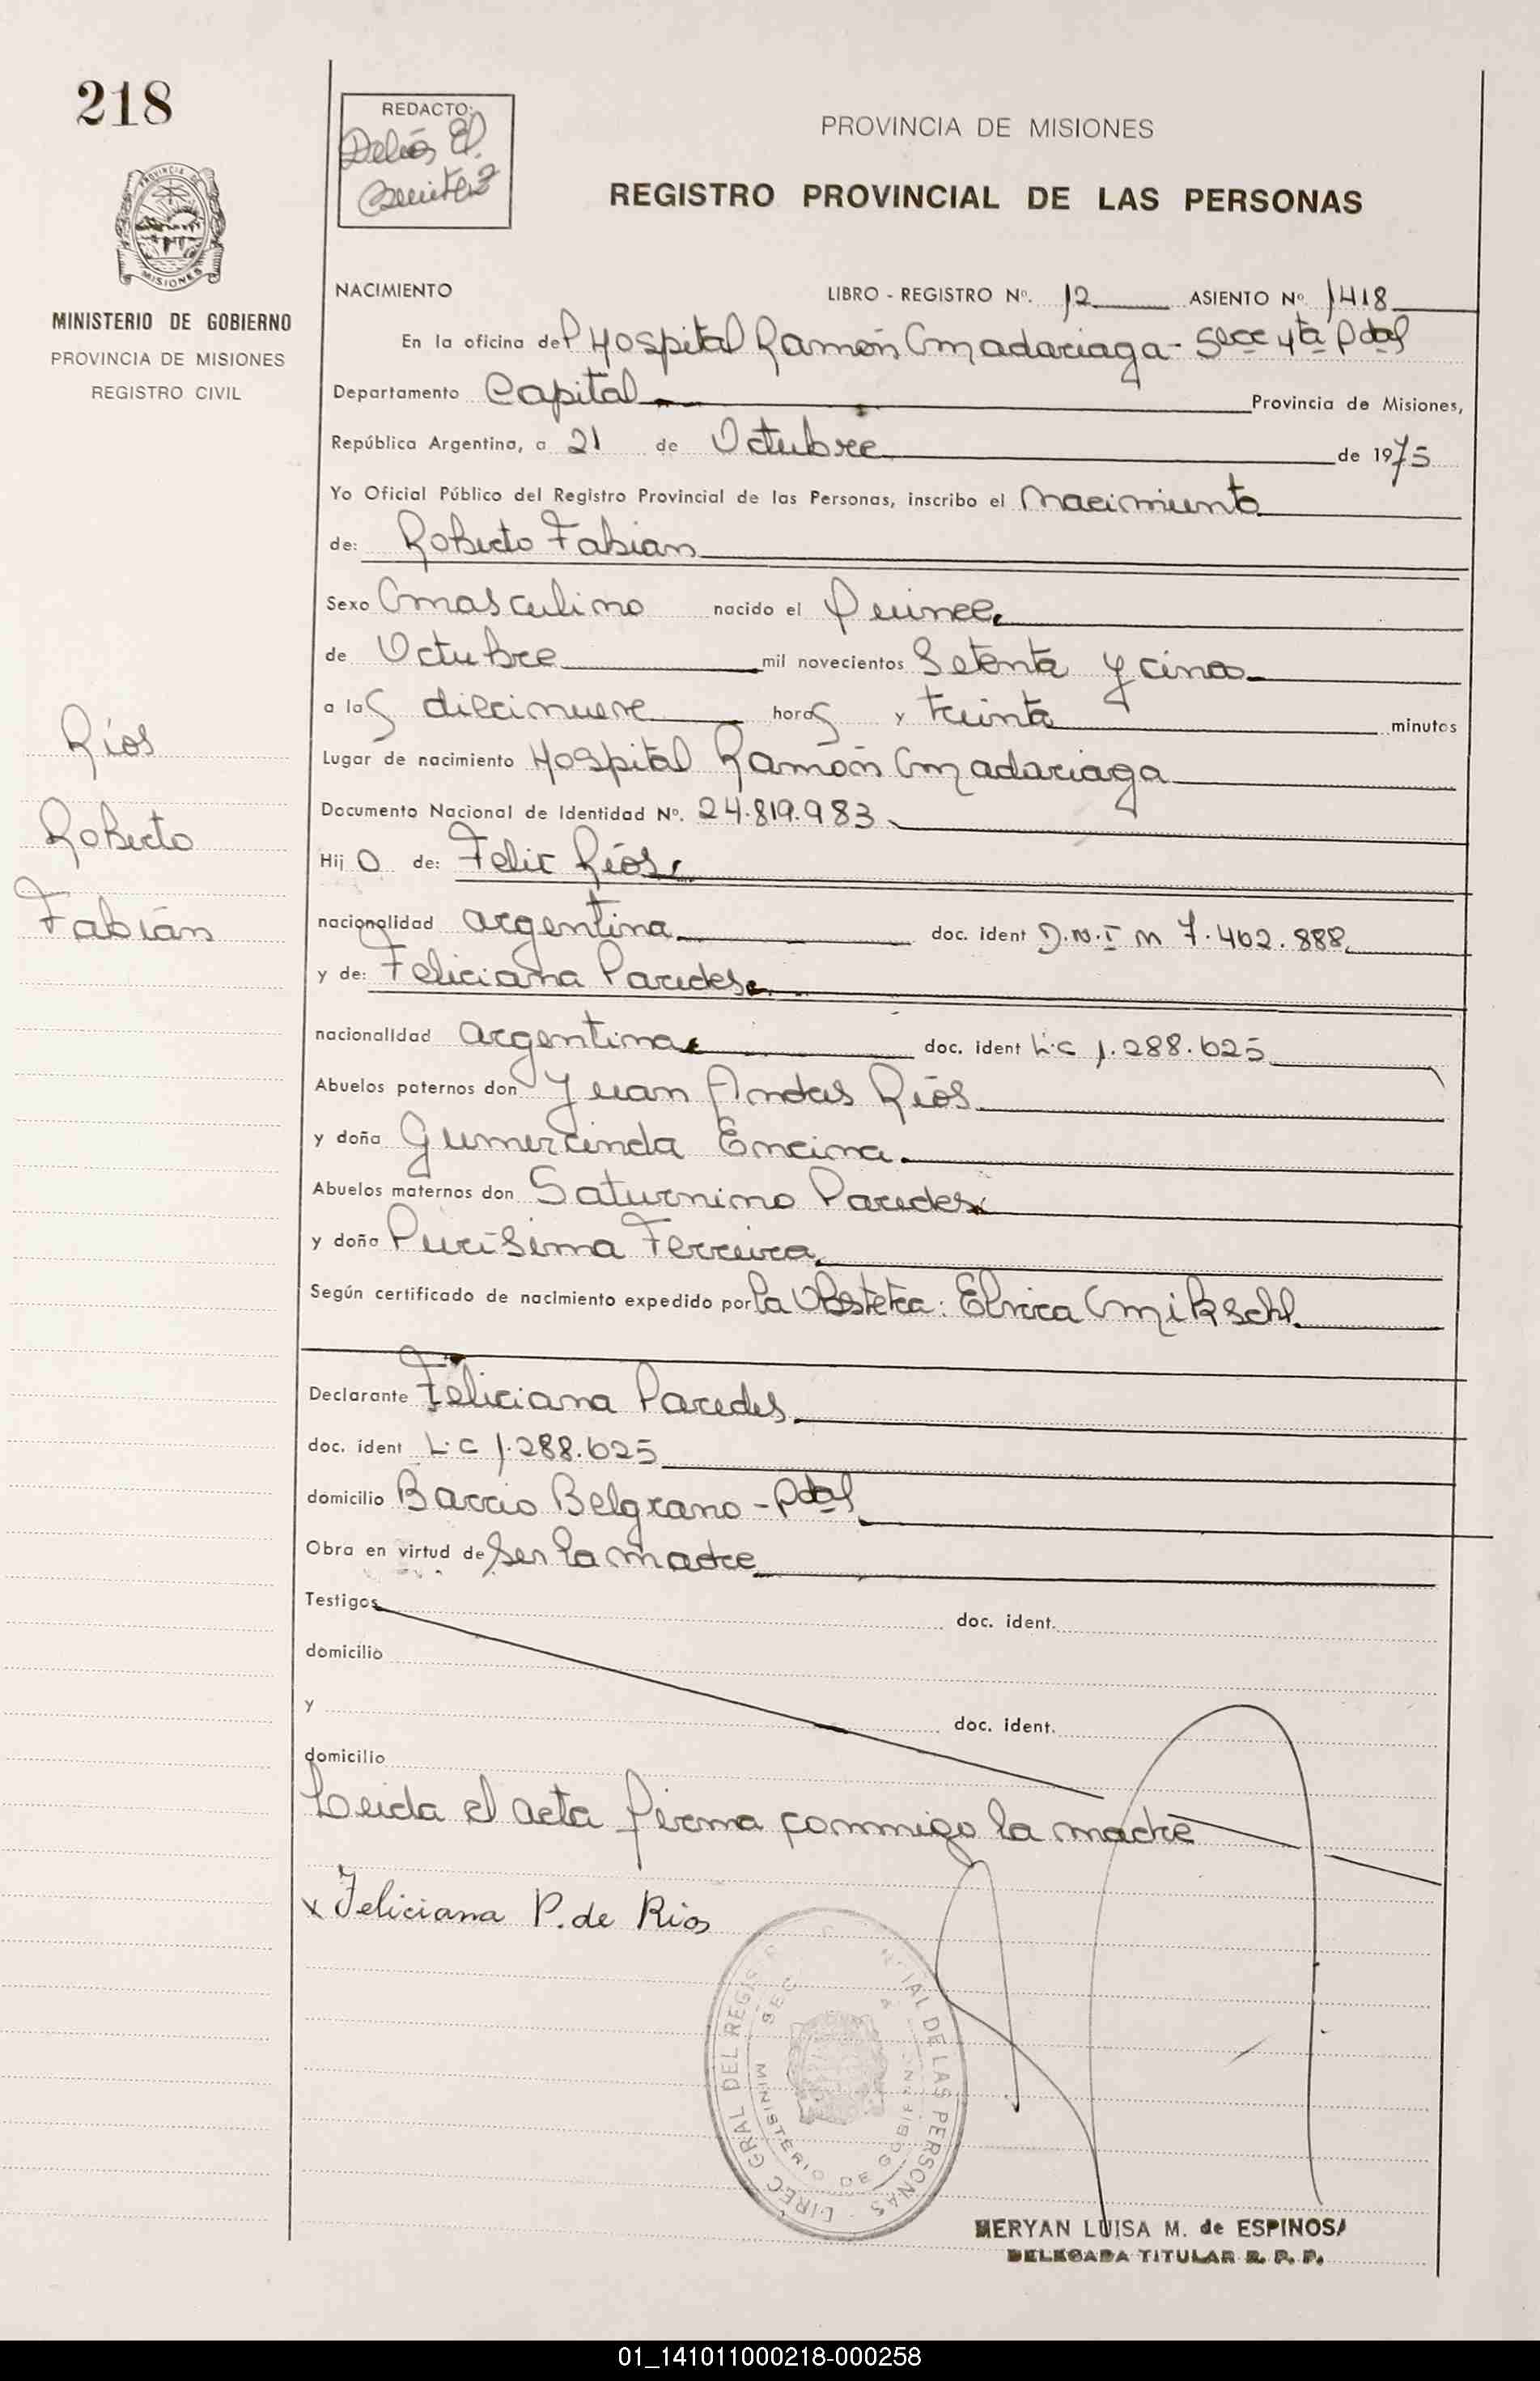 218
REDACTO:
Delia E.
Benitez
PROVINCIA DE MISIONES
REGISTRO PROVINCIAL DE LAS PERSONAS
PROVINCIA DE
MISIONES
MINISTERIO DE GOBIERNO
PROVINCIA DE MISIONES
REGISTRO CIVIL
NACIMIENTO LIBRO - REGISTRO Nº. 12 ASIENTO Nº 1418
En la oficina del Hospital Ramón Madariaga - Secc 4ta Pdas
Departamento Capital Provincia de Misiones,
República Argentina, a 21 de Octubre de 1975
Yo Oficial Público del Registro Provincial de las Personas, inscribo el Nacimiento
de: Roberto Fabian
Sexo Masculino nacido el Quince
de Octubre mil novecientos Setenta y cinco
a las diecinueve horas y treinta minutos
Lugar de nacimiento Hospital Ramón Madariaga
Documento Nacional de Identidad Nº. 24.819.983
Hijo de: Felix Ríos
nacionalidad argentina doc. ident D.N.I M 7.402.888
y de: Feliciana Paredes
nacionalidad argentina doc. ident L.C 1.288.625
Abuelos paternos don Juan Andres Ríos
y doña Gumercinda Encina
Abuelos maternos don Saturnino Paredes
y doña Purísima Ferreira
Según certificado de nacimiento expedido por la Obstetra: Elvira Mikschl
Declarante Feliciana Paredes
doc. ident L.C 1.288.625
domicilio Barrio Belgrano - Pdas
Obra en virtud de Ser la madre
Testigos doc. ident.
domicilio
y doc. ident.
domicilio
Leida el acta firma conmigo la madre
x Feliciana P. de Rios
Ríos
Roberto
Fabián
DIREC GRAL DEL REGIS IAL DE LAS PERSONAS
MINISTERIO DE GOBIERNO
MERYAN LUISA M. de ESPINOSA
DELEGADA TITULAR R. P. P.
01_141011000218-000258